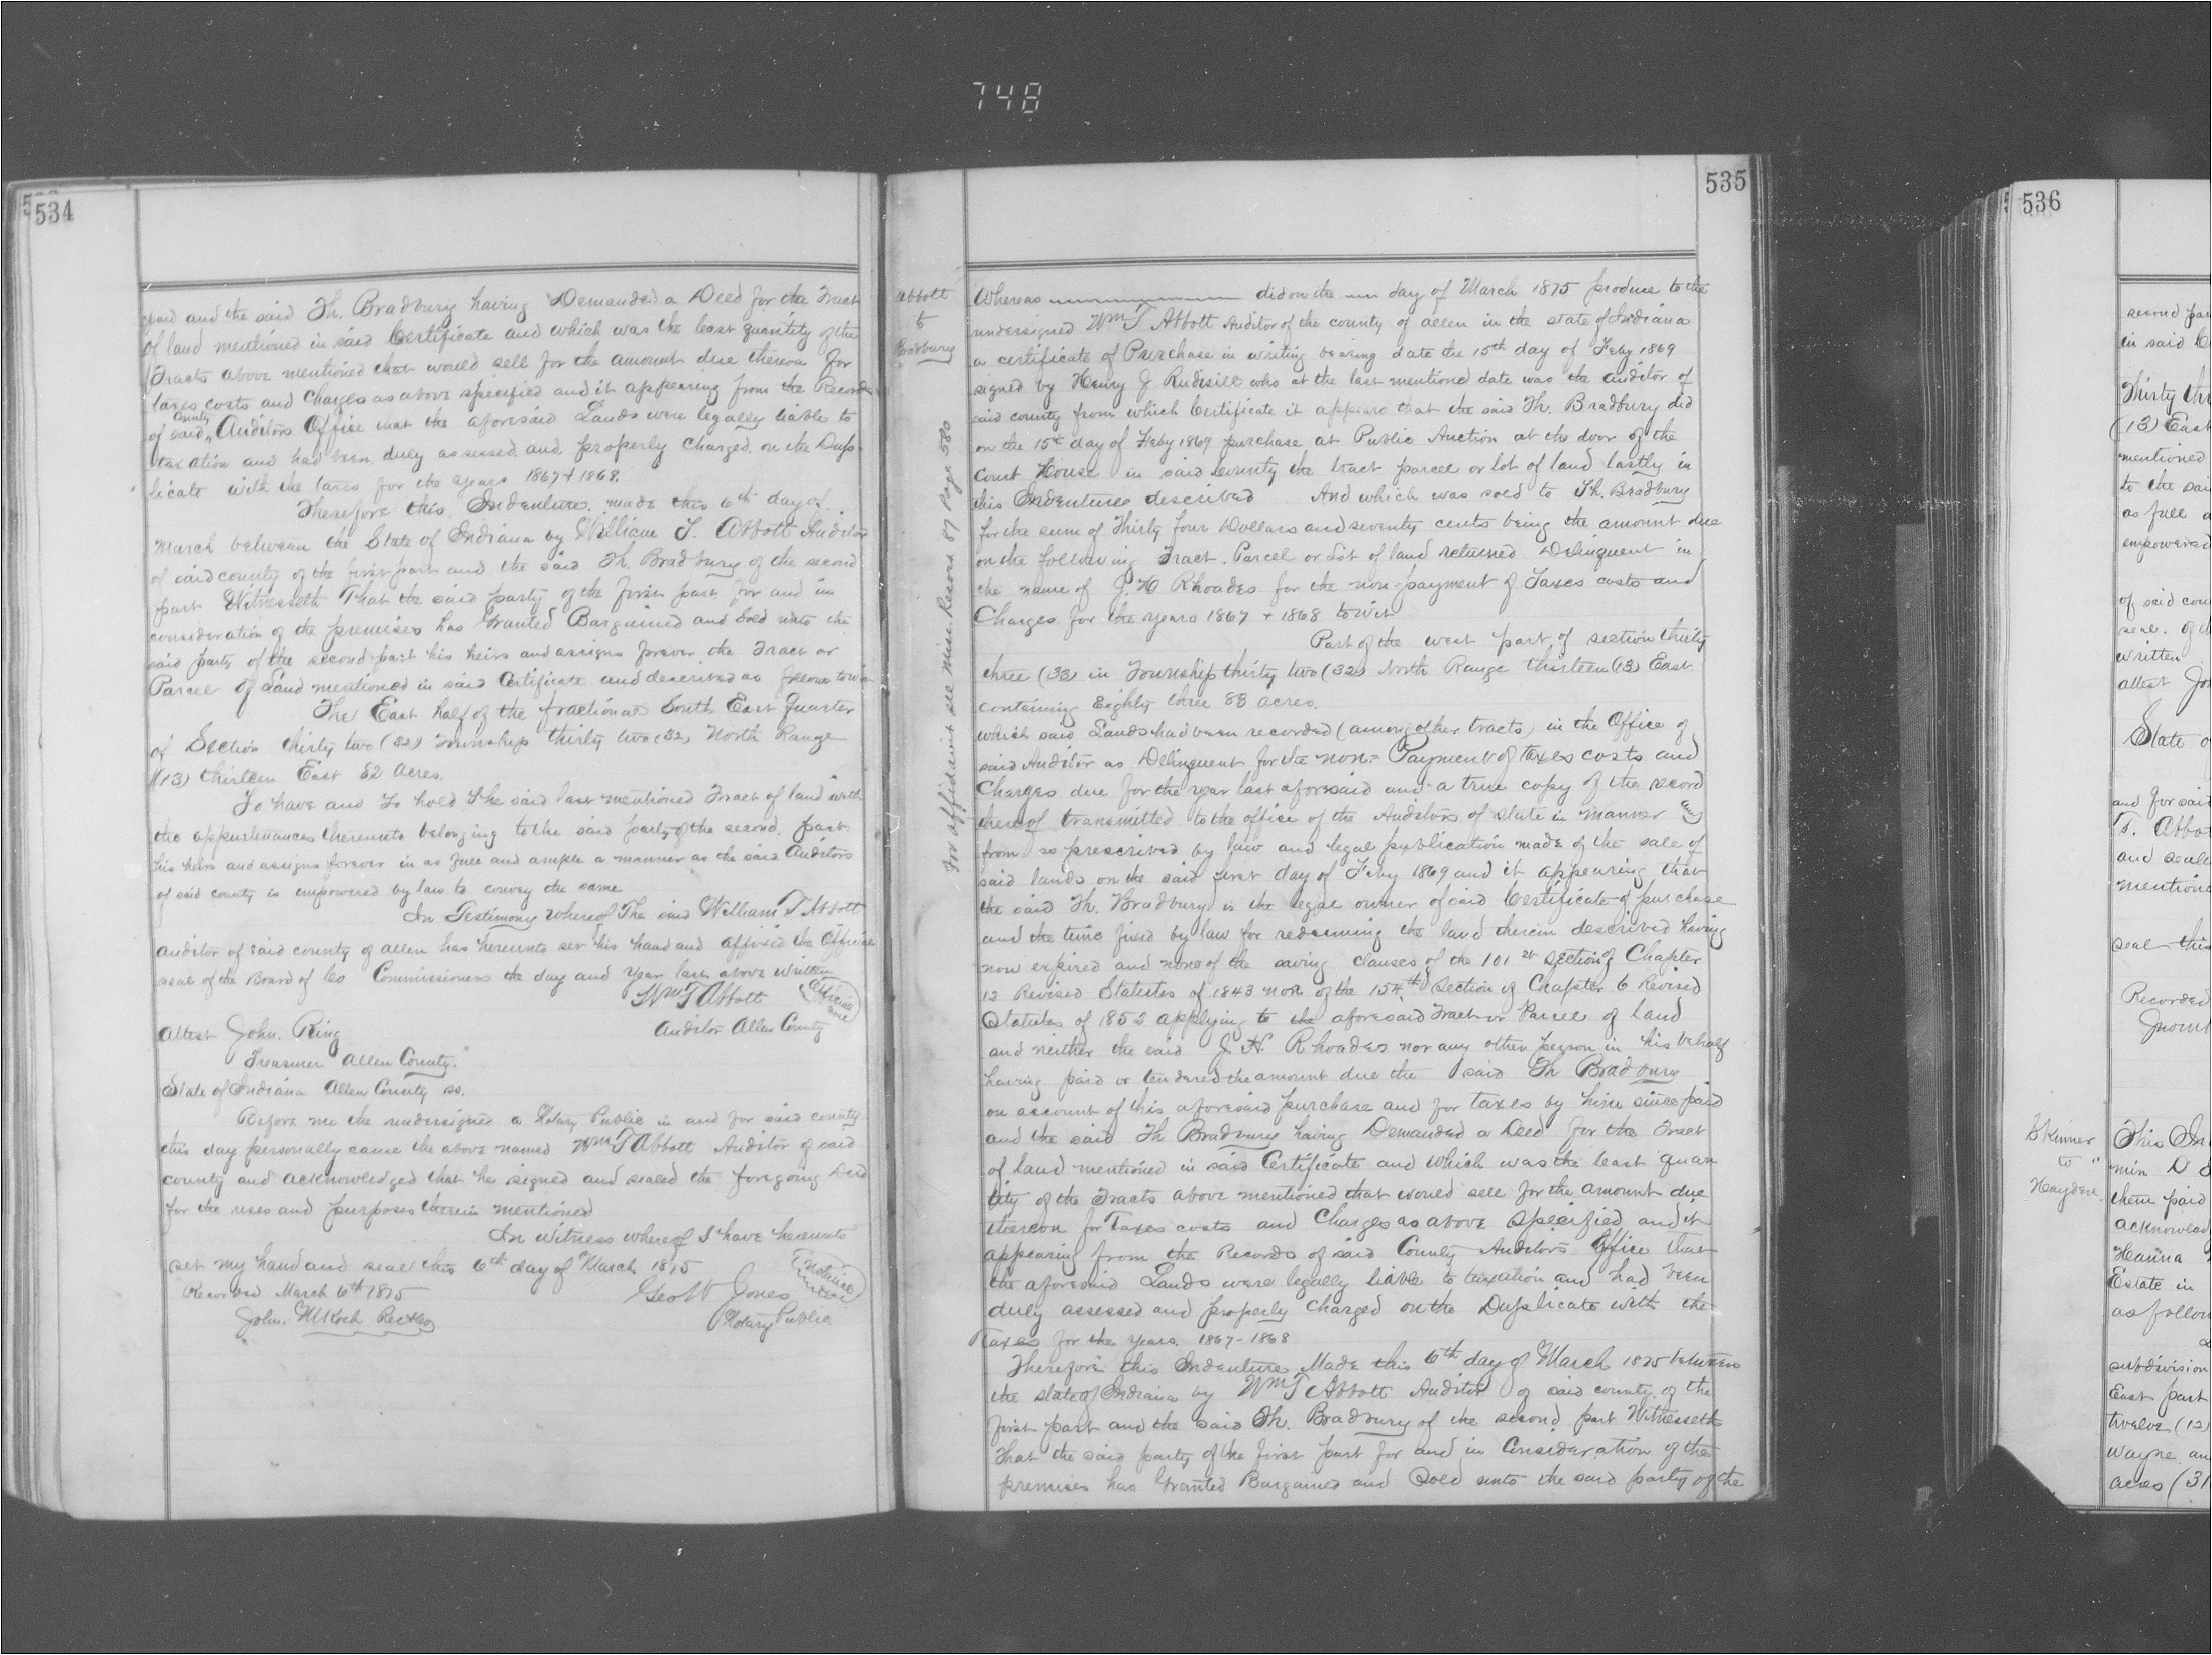 748
534
paid and the said Th. Bradbury having Demanded a Deed for the Tract
of land mentioned in said Certificate and which was the least quantity of the
Tracts above mentioned that would sell for the amount due thereon for
taxes costs and Charges as above specified and it appearing from the Records
of said County Auditors Office that the aforesaid Lands were legally liable to
taxation and had been duly assessed and properly Charged on the Dup-
licate with the taxes for the years 1867 & 1868.
Therefore this Indenture made this 6th day of
March between the State of Indiana by William T. Abbott Auditor
of said county of the first part and the said Th. Bradbury of the second
part Witnesseth That the said party of the first part for and in
consideration of the premises has Granted Bargained and Sold unto the
said party of the second part his heirs and assigns forever the Tract or
Parcel of Land mentioned in said Certificate and described as follows towit
The East half of the fractional South East Quarter
of Section thirty two (32) Township thirty two (32) North Range
(13) thirteen East 82 acres.
To have and to hold The said last mentioned Tract of land with
the appurtenances thereunto belonging to the said party of the second part
his heirs and assigns forever in as full and ample a manner as the said Auditors
of said county is empowered by law to convey the same
In Testimony whereof The said William T Abbott
auditor of said county of allen has hereunto set his hand and affixed the Official
seal of the Board of Co Commissioners the day and year last above written
Wm T Abbott Official Seal
Auditor Allen County
attest John Ring
Treasurer Allen County.
State of Indiana Allen County ss.
Before me the undersigned a Notary Public in and for said county
this day personally came the above named Wm T Abbott Auditor of said
county and acknowledged that he signed and sealed the foregoing Deed
for the uses and purposes therein mentioned
In witness whereof I have hereunto
set my hand and seal this 6th day of March 1875
Recorded March 6th 1875
Geo W Jones
Notary Public
John M Koch Recdr
535
Abbott
to
Bradbury
For affidavit see Misc. Record 87 Page 580
Whereas did on the day of March 1875 produce to the
undersigned Wm T Abbott Auditor of the county of allen in the state of Indiana
a certificate of Purchase in writing bearing date the 15th day of Feby 1869
signed by Henry J. Rudisill who at the last mentioned date was the auditor of
said county from which Certificate it appears that the said Th. Bradbury did
on the 15t day of Feby 1869 purchase at Public Auction at the door of the
Court House in said County the tract parcel or lot of land lastly in
this Indenture described And which was sold to Th. Bradbury
for the sum of Thirty four Dollars and seventy cents being the amount due
on the following Tract. Parcel or Lot of land returned Delinquent in
the name of J. H Rhoades for the non-payment of Taxes costs and
Charges for the years 1867 & 1868 towit
Part of the west part of section thirty
three (33) in Township thirty two (32) North Range thirteen (13) East
containing Eighty three 83 acres.
which said Lands had been recorded (among other tracts) in the Office of
said Auditor as Delinquent for the non-Payment of taxes costs and
Charges due for the year last aforesaid and a true copy of the record
thereof transmitted to the office of the Auditors of state in manner and
from so prescribed by law and legal publication made of the sale of
said lands on the said first day of Feby 1869 and it appearing that
the said Th. Bradbury is the legal owner of said Certificate of purchase
and the time fixed by law for redeeming the land therein described having
now expired and none of the saving clauses of the 101 st section of Chapter
12 Revised Statutes of 1843 nor of the 154th Section of Chapter 6 Revised
Statutes of 1852 applying to the aforesaid Tract or Parcel of land
and neither the said J. H. Rhoades nor any other person in his behalf
having paid or tendered the amount due the said Th Bradbury
on account of this aforesaid purchase and for taxes by him since paid
and the said Th Bradbury having Demanded a Deed for the Tract
of land mentioned in said Certificate and which was the least quan
tity of the Tracts above mentioned that would sell for the amount due
thereon for Taxes costs and Charges as above specified and it
appearing from the Records of said County Auditors Office that
the aforesaid Lands were legally liable to taxation and had been
duly assessed and properly charged on the Duplicate with the
Taxes for the years. 1867-1868
Therefore this Indenture Made this 6th day of March 1875 between
the state of Indiana by Wm T Abbott Auditor of said county of the
first part and the said Th. Bradbury of the second part Witnesseth
That the said party of the first part for and in Consideration of the
premises has Granted Bargained and Sold unto the said party of the
536
second par
in said C
Thirty thr
(13) East
mentioned
to the sai
as full a
empowered
of said cou
seal. of th
written
attest Jo
State o
and for said
T. Abbo
and seale
mentione
seal this
Recorded
Skinner
to
Hayden
This In
min D S
them paid
acknowled
Hanna
Estate in
as follow
subdivision
East part
twelve (12)
Wayne an
acres (31